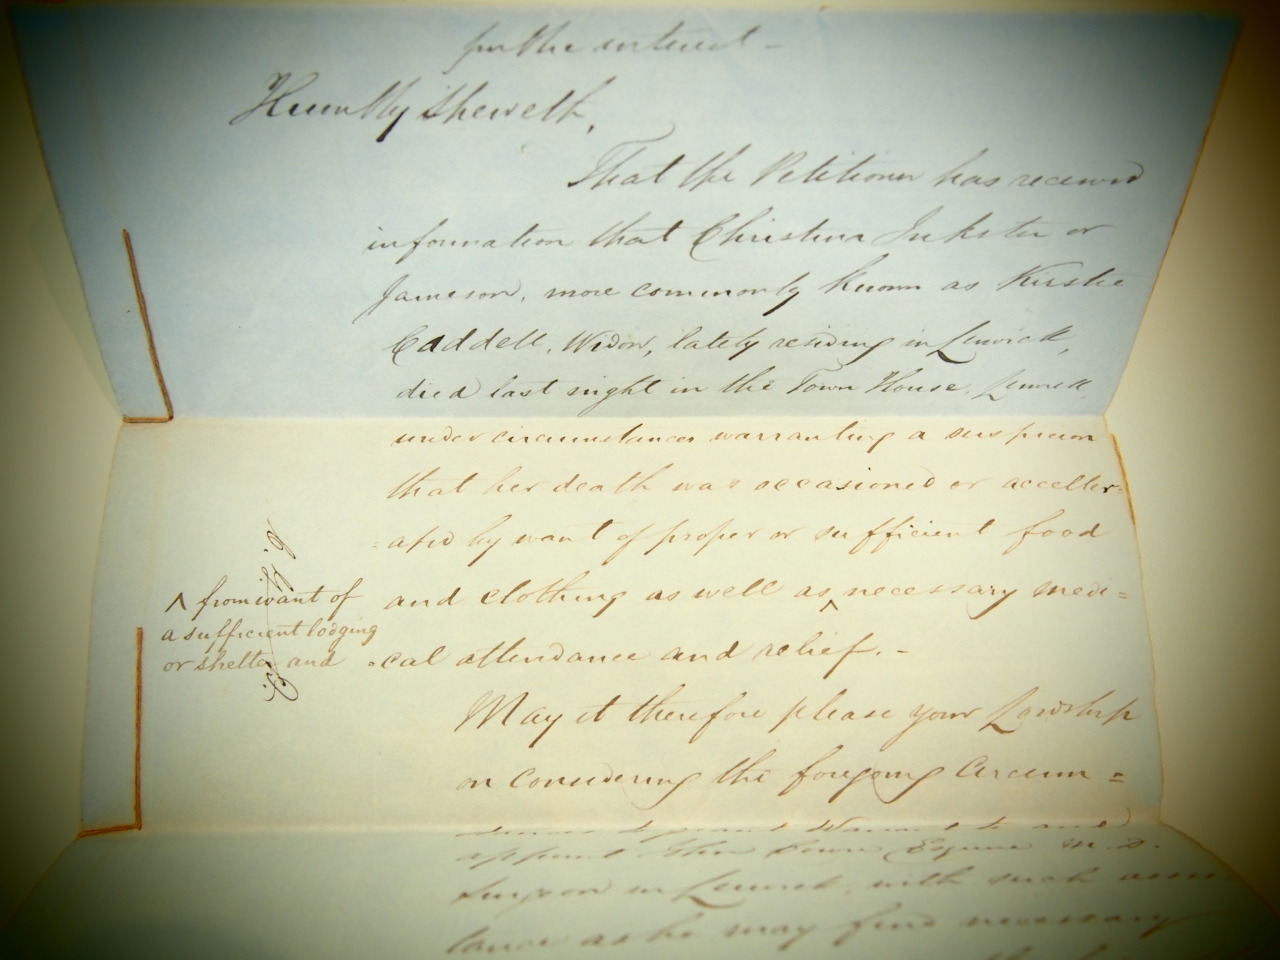 for the interest -
Humbly Sheweth,
That the Petitioner has received
information that Christina Inkster or
Jameson, more commonly known as Kirstie
Caddell, Widow, lately residing in Lerwick,
died last night in the Town House, Lerwick,
under circumstances warranting a suspicion
that her death was occasioned or acceller=
=ated by want of proper or sufficient food
and clothing as well as ^ necessary medi=
^ from want of
a sufficient lodging
or shelter and
=cal attendance and relief. -
May it therefore please your Lordship
on considering the foregoing Circum=
to grant Warrant to and
appoint Esquire M.D.
Surgeon in Lerwick, with such assis
tance as he may find necessary